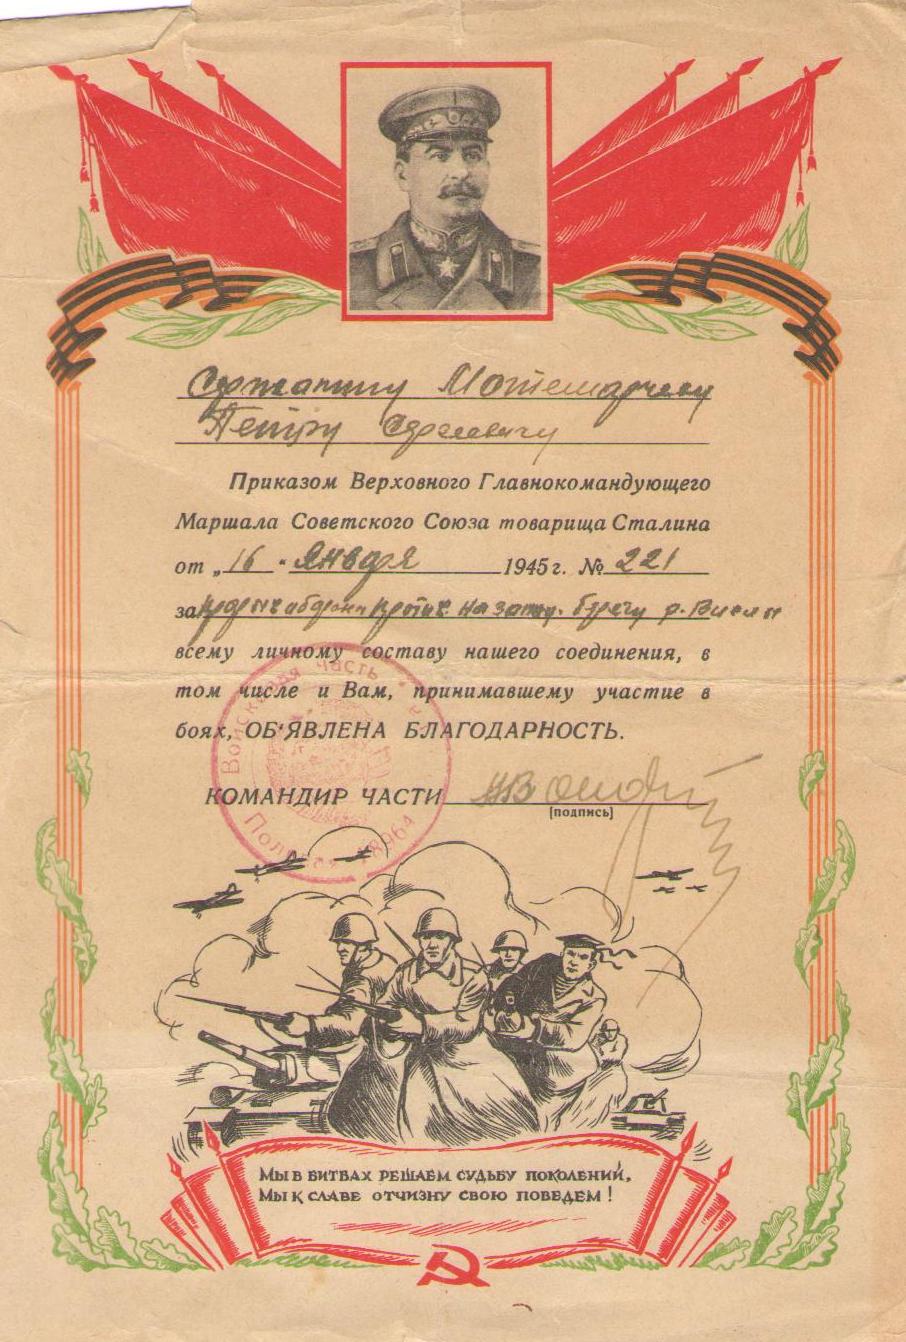 Сержанту
Петру
Приказом Верховного Главнокомандующего
Маршала Советского Союза товарища Сталина
от „16 " Января 1945 г. № 221
за обороны против. на запад. берегу р. Вислы
всему личному составу нашего соединения, в
том числе и Вам, принимавшему участие в
боях, ОБ'ЯВЛЕНА БЛАГОДАРНОСТЬ.
КОМАНДИР ЧАСТИ
[подпись]
Войсковая часть
Полевая 18964
Мы в битвах решаем судьбу поколений,
Мы к славе отчизну свою поведем!